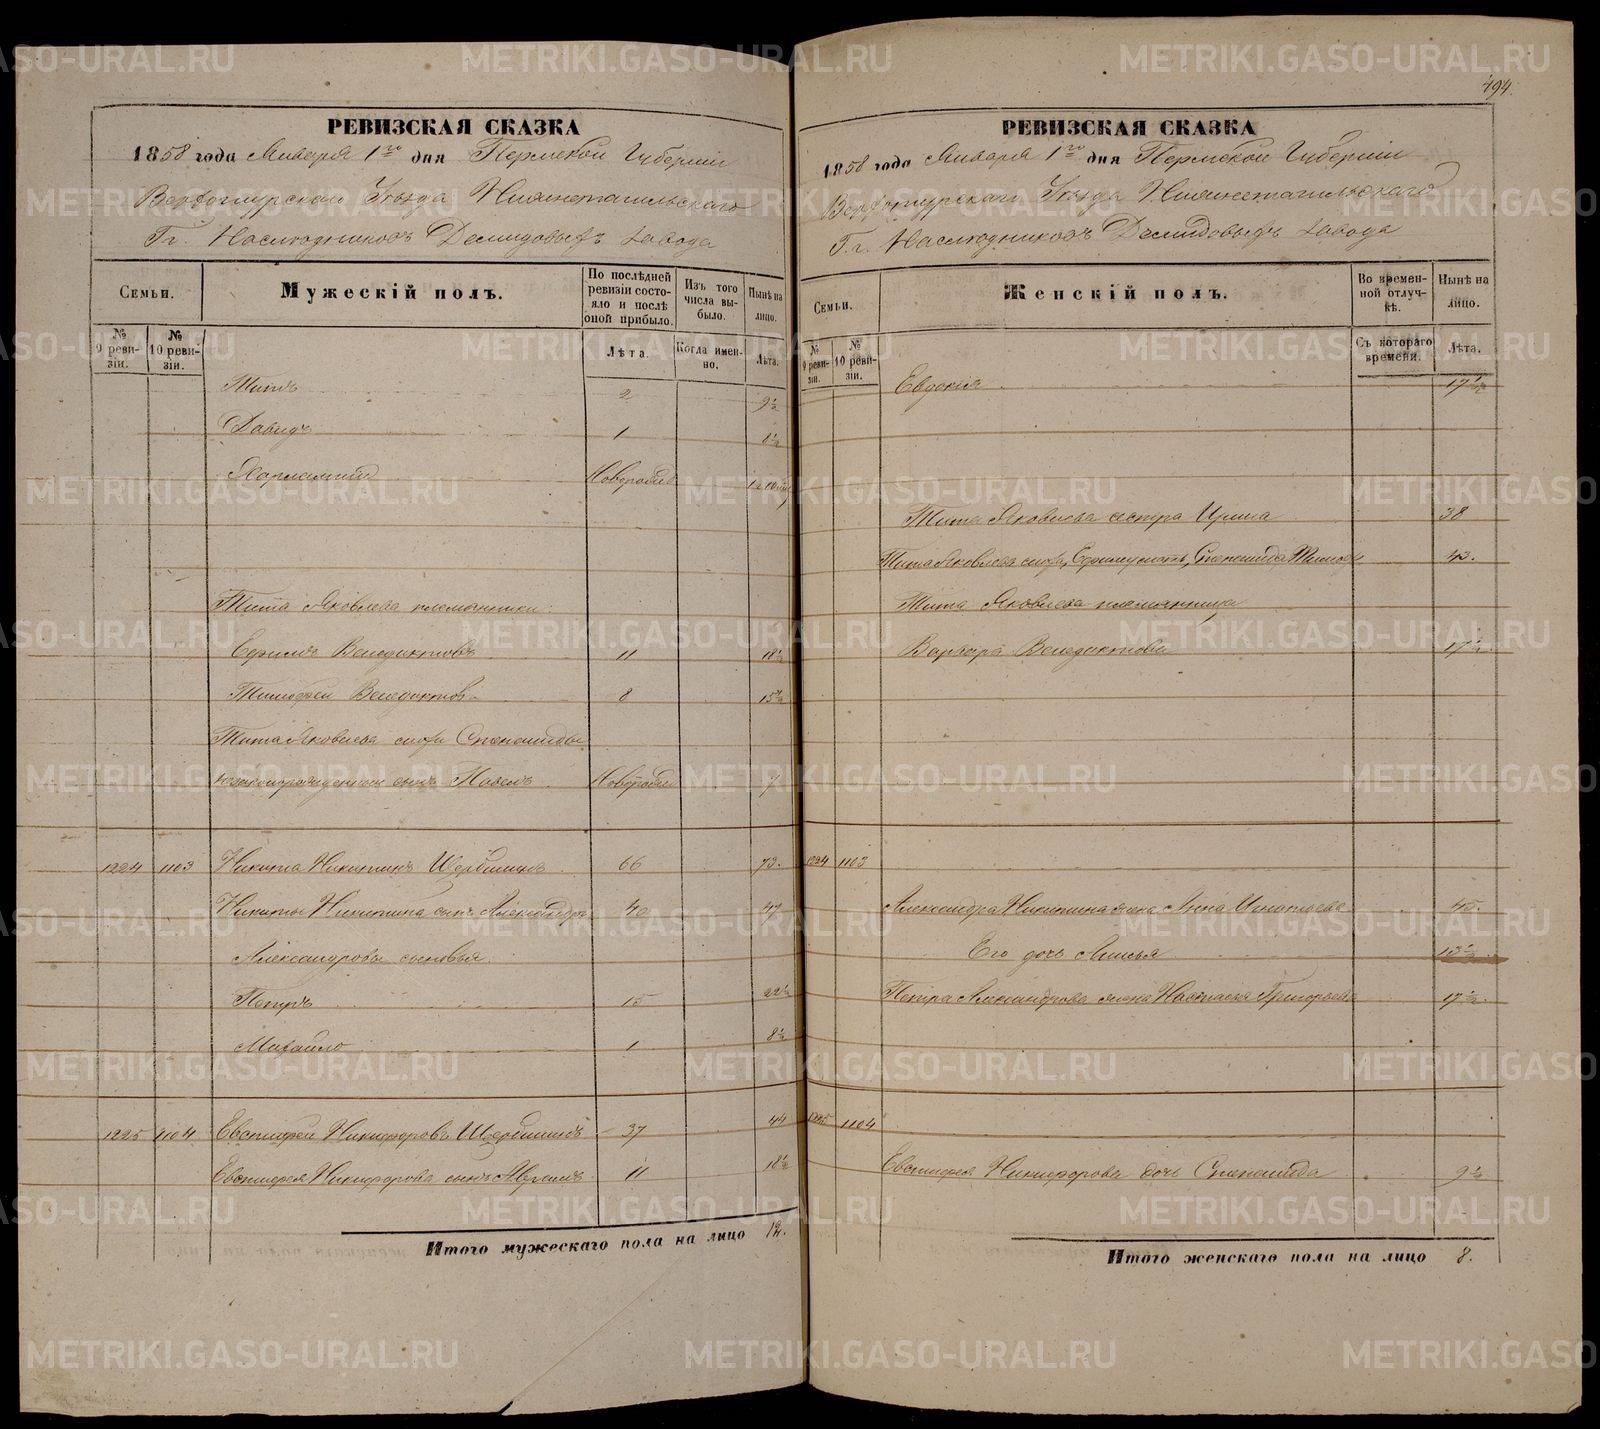 494.
РЕВИЗСКАЯ СКАЗКА
1858 года Января 1го дня Пермской Губернии
Верхотурскаго Уѣзда Нижнетагильскаго
Гг. Наслѣдниковъ Демидовыхъ завода
Семьи.
Мужескій полъ.
По послѣдней ревизіи состояло и послѣ оной прибыло.
Изъ того числа выбыло.
Нынѣ на лицо.
№ 9 ревизіи.
№ 10 ревизіи.
Лѣта.
Когда именно.
Лѣта.
Титъ 2 9½
Давидъ 1 8½
Харлампій Новорожд
Тита Яковлева племянники:
Ефимъ Венедиктовъ 11 18½
Тимофей Венедиктовъ 8 15½
Тита Яковлева снохи Степаниды
незаконорожденной сынъ Павелъ Новорожд 7
1224 1103 Никита Никитинъ Щербининъ 66 73.
Никиты Никитина сынъ Александръ 40 47
Александровы сыновья:
Петръ 15 22½
Михайло 1 8½
1225 1104 Евстифей Никифоровъ Щербининъ 37 44
Евстифея Никифорова сынъ 11 18½
Итого мужескаго пола на лицо 12.
РЕВИЗСКАЯ СКАЗКА
1858 года Января 1го дня Пермской Губерніи
Верхотурскаго Уѣзда Нижнетагильскаго
Гг. Наслѣдниковъ Демидовыхъ завода
Семьи.
Женскій полъ.
Во временной отлучкѣ.
Нынѣ на лицо.
№ 9 ревизіи.
№ 10 ревизіи.
Съ котораго времени.
Лѣта.
Евдокія 17½
Тита Яковлева сестра Ирина 38
Тита Яковлева сноха, Ефиму мать, Степанида 43.
Тита Яковлева племянница
Варвара Венедиктова 17½
1224 1103
Александра Никитина жена Анна Игнатьева 45.
Его дочь 13½
Петра Александрова жена Настасья Григорьева 17½
1225 1104
Евстифея Никифорова дочь Степанида 9½
Итого женскаго пола на лицо 8.
METRIKI.GASO-URAL.RU